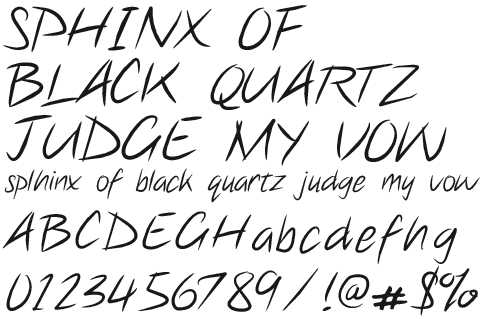 SPHINX OF
BLACK QUARTZ
JUDGE MY VOW
splhinx of black quartz judge my vow
ABCDEGHabcdefhg
0123456789/!@#$%